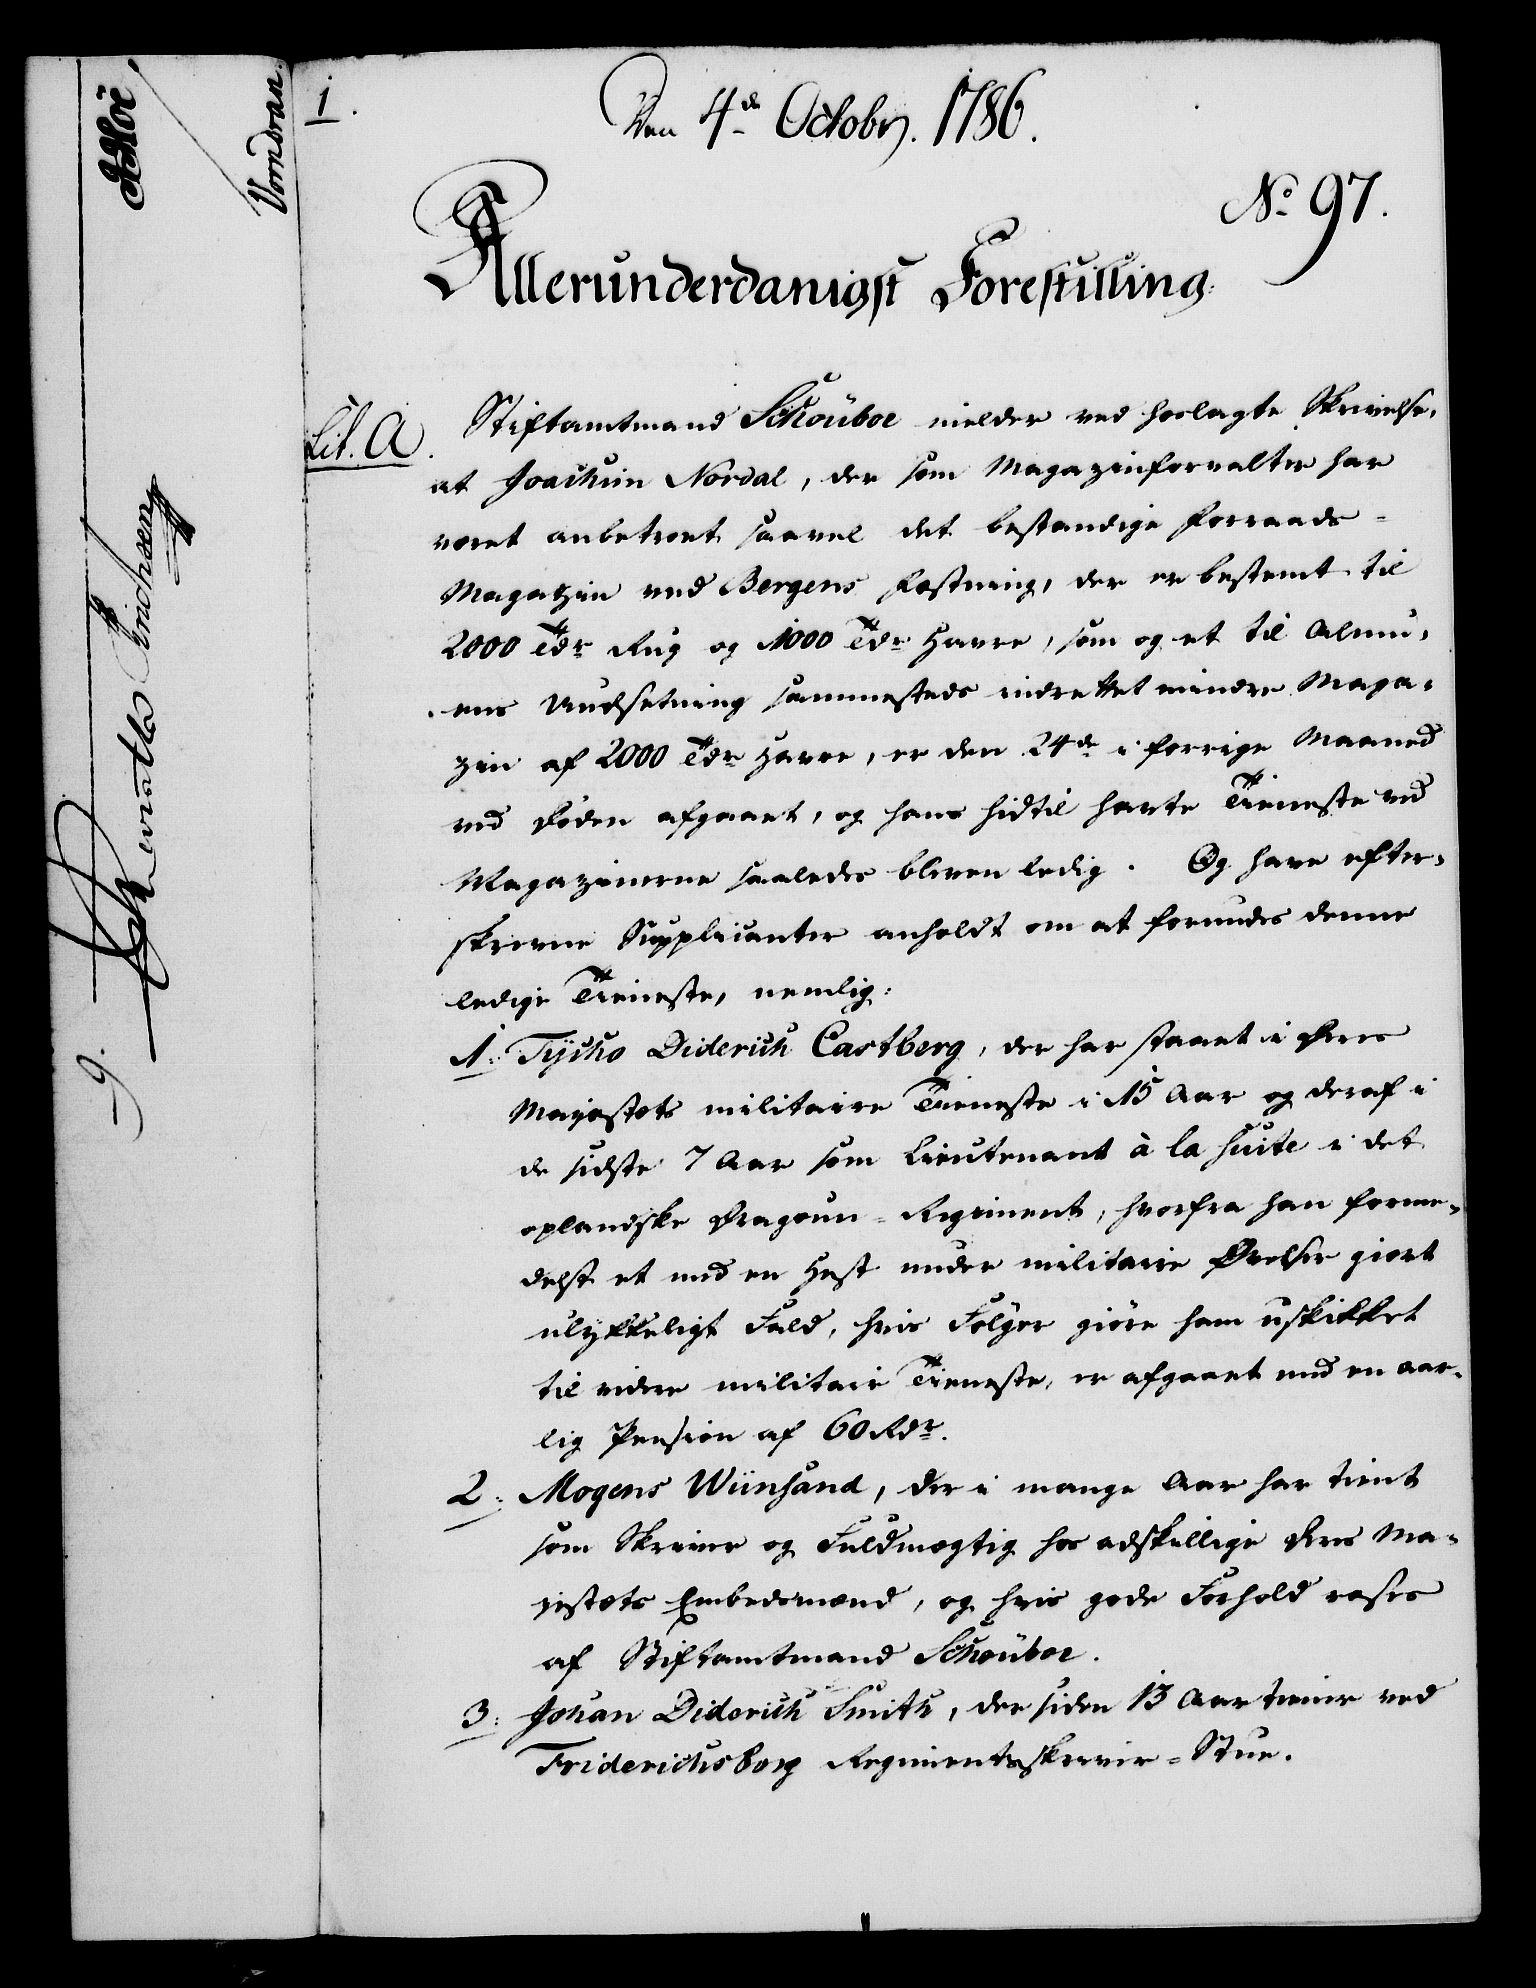 1.
Den 4de Octobr. 1786.
No 97.
Allerunderdanigst Forestilling.
Lit. A.
Stiftamtmand Schouboe melder ved hoslagte Skrivelse,
at Joachim Nordal, der som Magazinforvalter har
været anbetroet saavel det bestandige Forraads-
Magatzin ved Bergens Fæstning, der er bestemt til
2000 Tdr Rug og 1000 Tdr Havre, som og et til Almu-
ens Undsetning sammesteds indrettet mindre Maga-
zin af 2000 Tdr Havre, er den 24de i forrige Maaned
ved Døden afgaaet, og hans hidtil havte Tieneste ved
Magazinerne saaledes bleven ledig. Og have efter-
skrevne Supplicanter anholdt om at forundes denne
ledige Tieneste, nemlig:
1: Tycho Diderich Castberg, der har staaet i Deres
Majestæts militaire Tieneste i 15 Aar og deraf i
de sidste 7 Aar som Lieutenant à la Suite i det
oplandske Dragoun-Regiment, hvorfra han forme-
delst et med en Hest under militaire Øvelser giort
ulykkeligt Fald, hvis Følger giøre ham uskikket
til videre militair Tieneste, er afgaaet med en aar-
lig Pension af 60 Rdr.
2: Mogens Wiinsand, der i mange Aar har tient
som Skriver og Fuldmægtig hos adskillige Deres Ma-
jestæts Embedsmænd, og hvis gode Forhold roses
af Stiftamtmand Schouboe.
3: Johan Diderich Smith, der siden 13 Aar tiener ved
Friderichsborg Regimentsskriver-Stue.
Vorndran.
Erichsen
9.